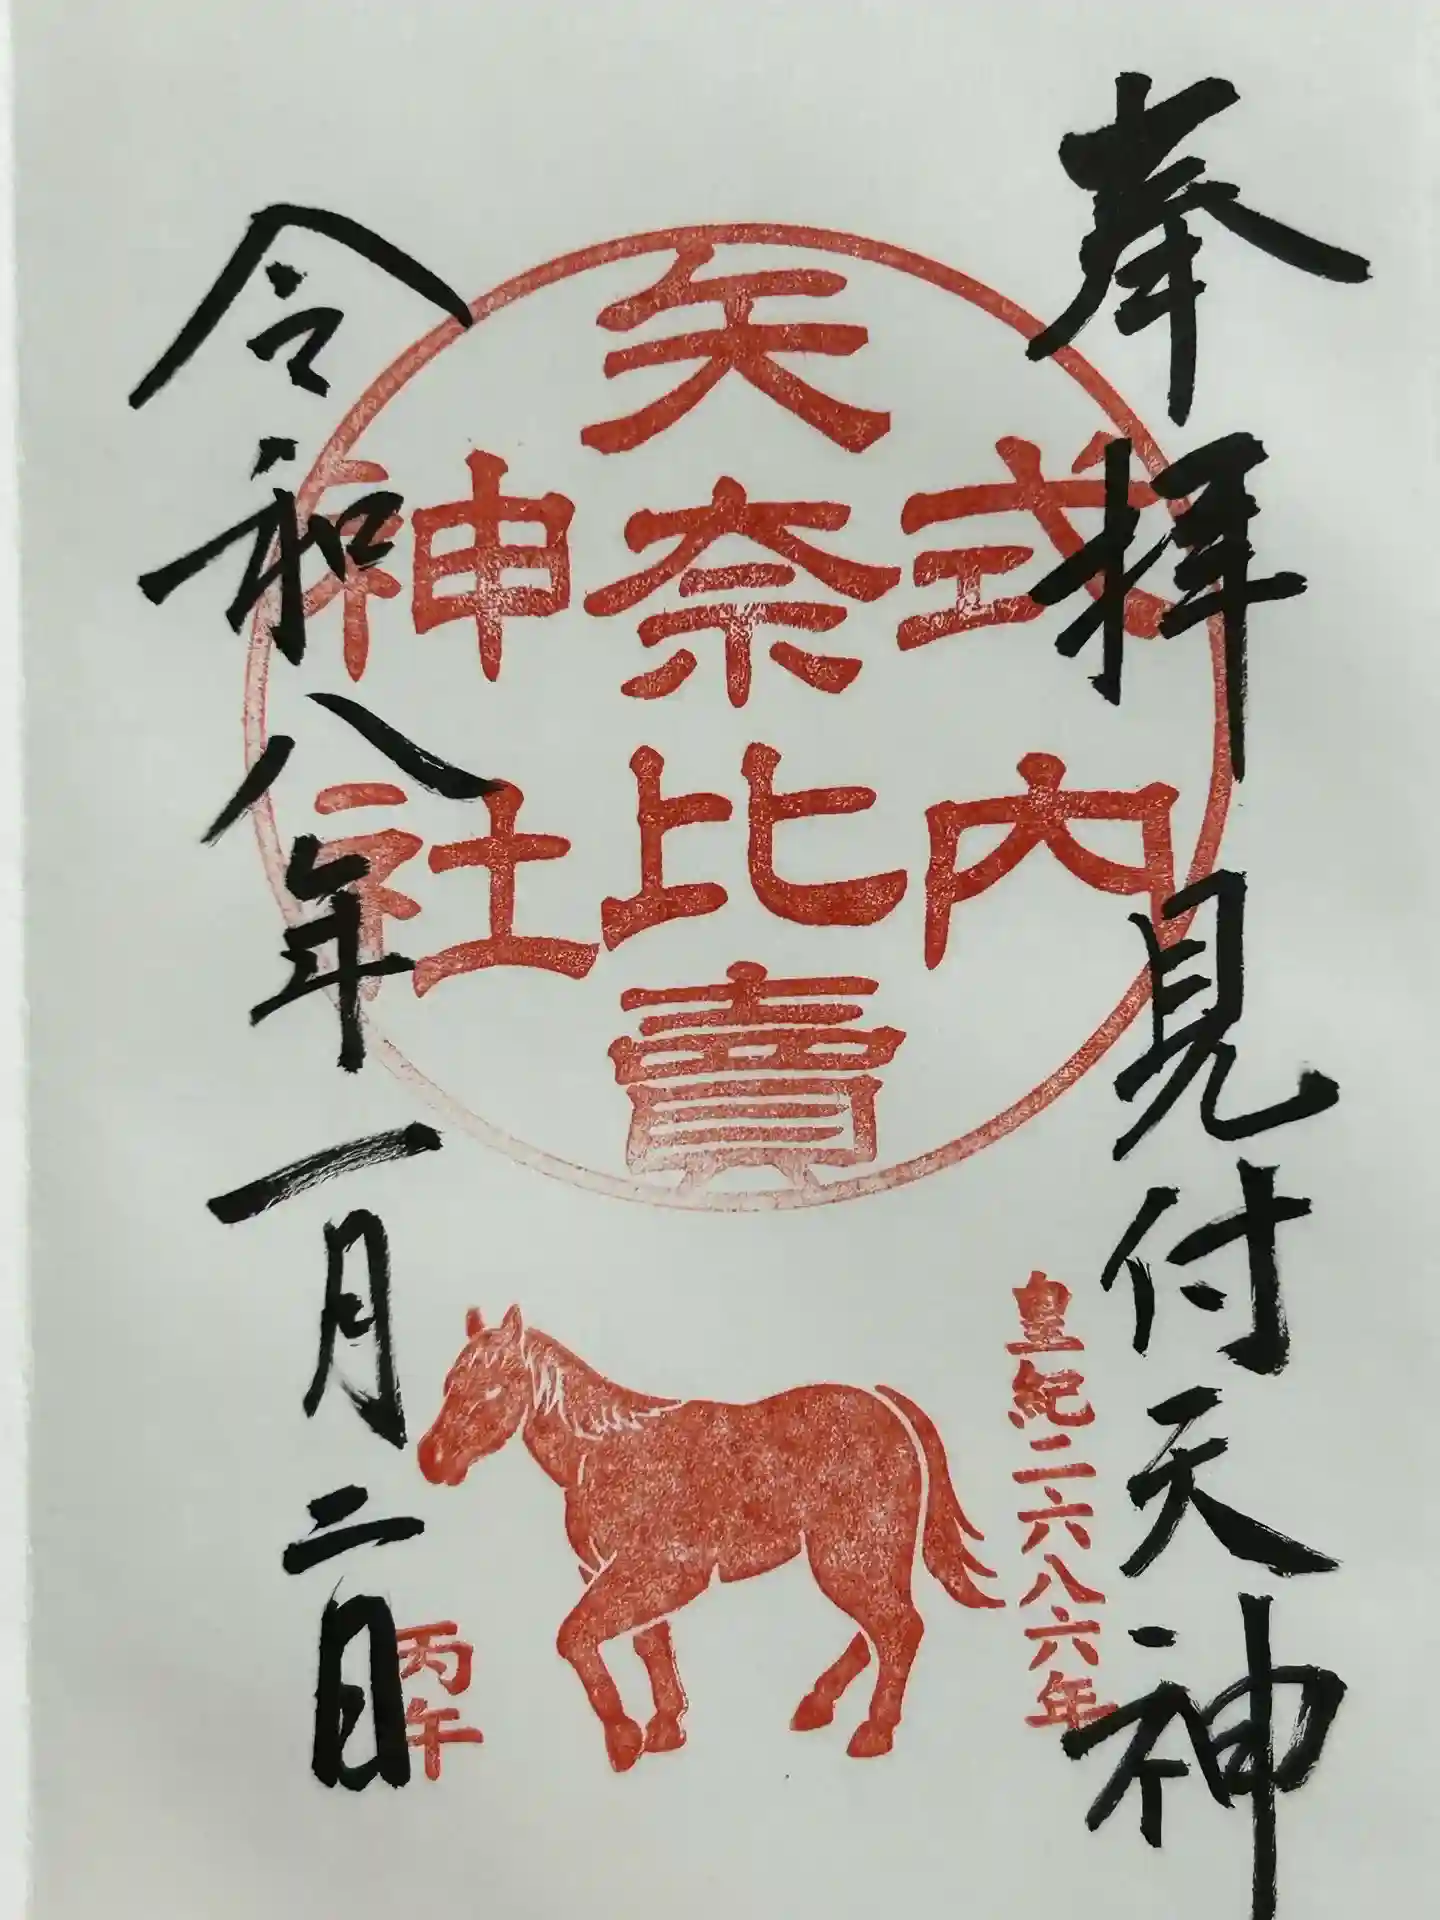 奉拝 見付天神
式内
矢奈比賣
神社
皇紀二六八六年
丙午
令和八年一月二日